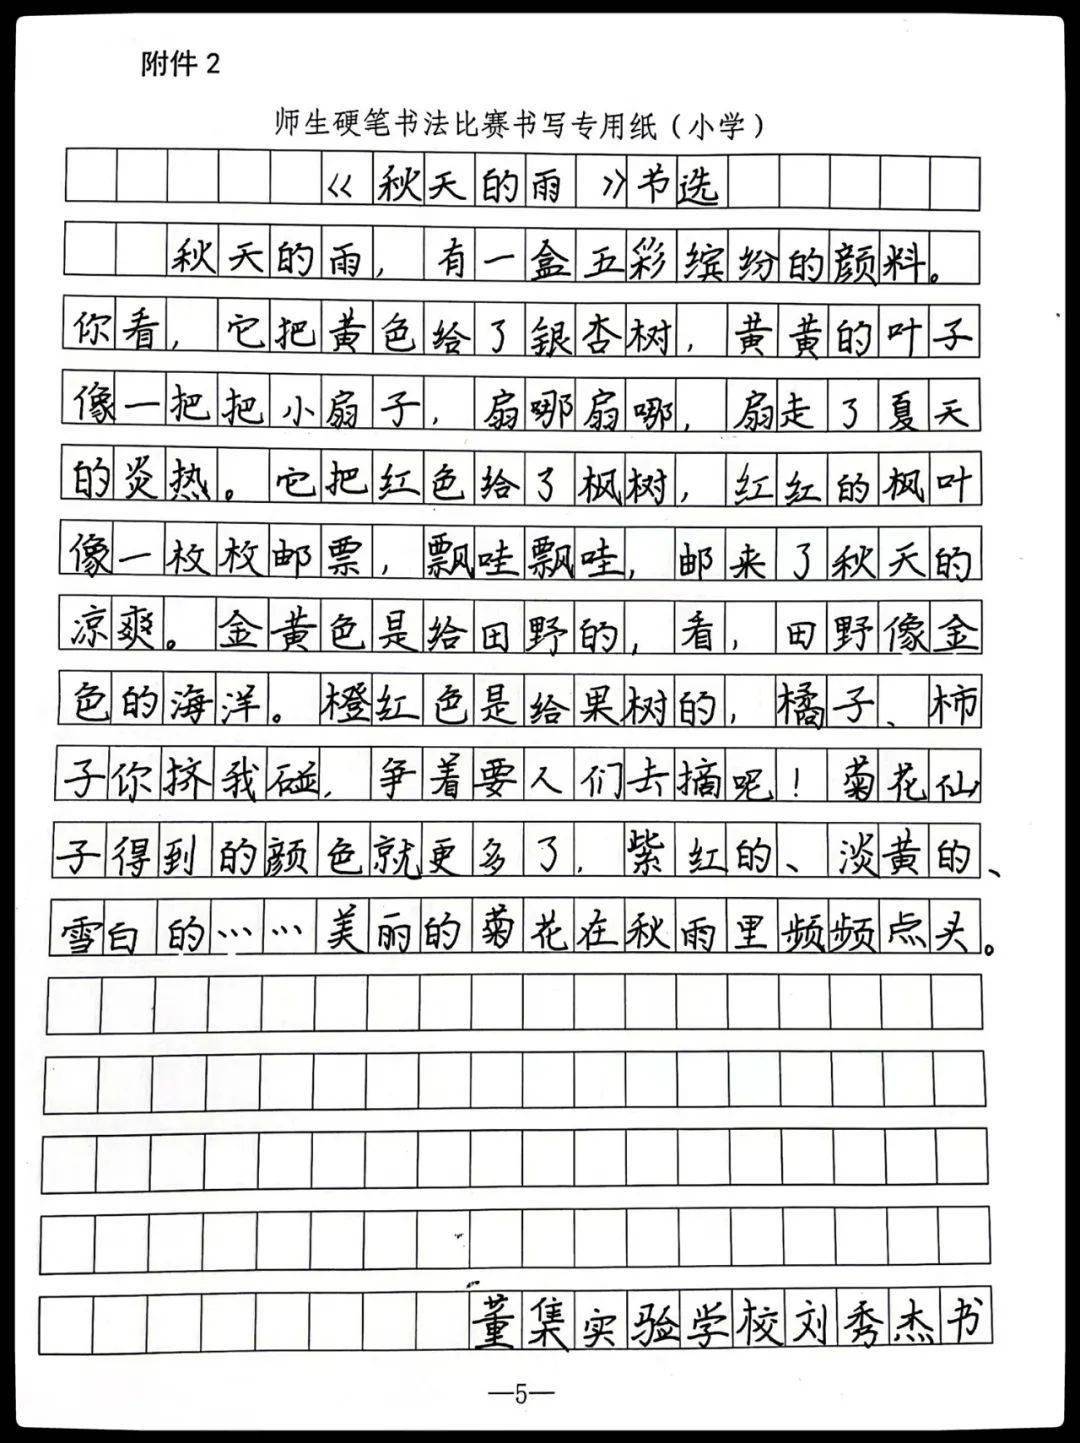 附件2
师生硬笔书法比赛书写专用纸（小学）
《秋天的雨》节选
秋天的雨，有一盒五彩缤纷的颜料。
你看，它把黄色给了银杏树，黄黄的叶子
像一把把小扇子，扇哪扇哪，扇走了夏天
的炎热。它把红色给了枫树，红红的枫叶
像一枚枚邮票，飘哇飘哇，邮来了秋天的
凉爽。金黄色是给田野的，看，田野像金
色的海洋。橙红色是给果树的，橘子、柿
子你挤我碰，争着要人们去摘呢！菊花仙
子得到的颜色就更多了，紫红的、淡黄的、
雪白的……美丽的菊花在秋雨里频频点头。
董集实验学校刘秀杰书
—5—